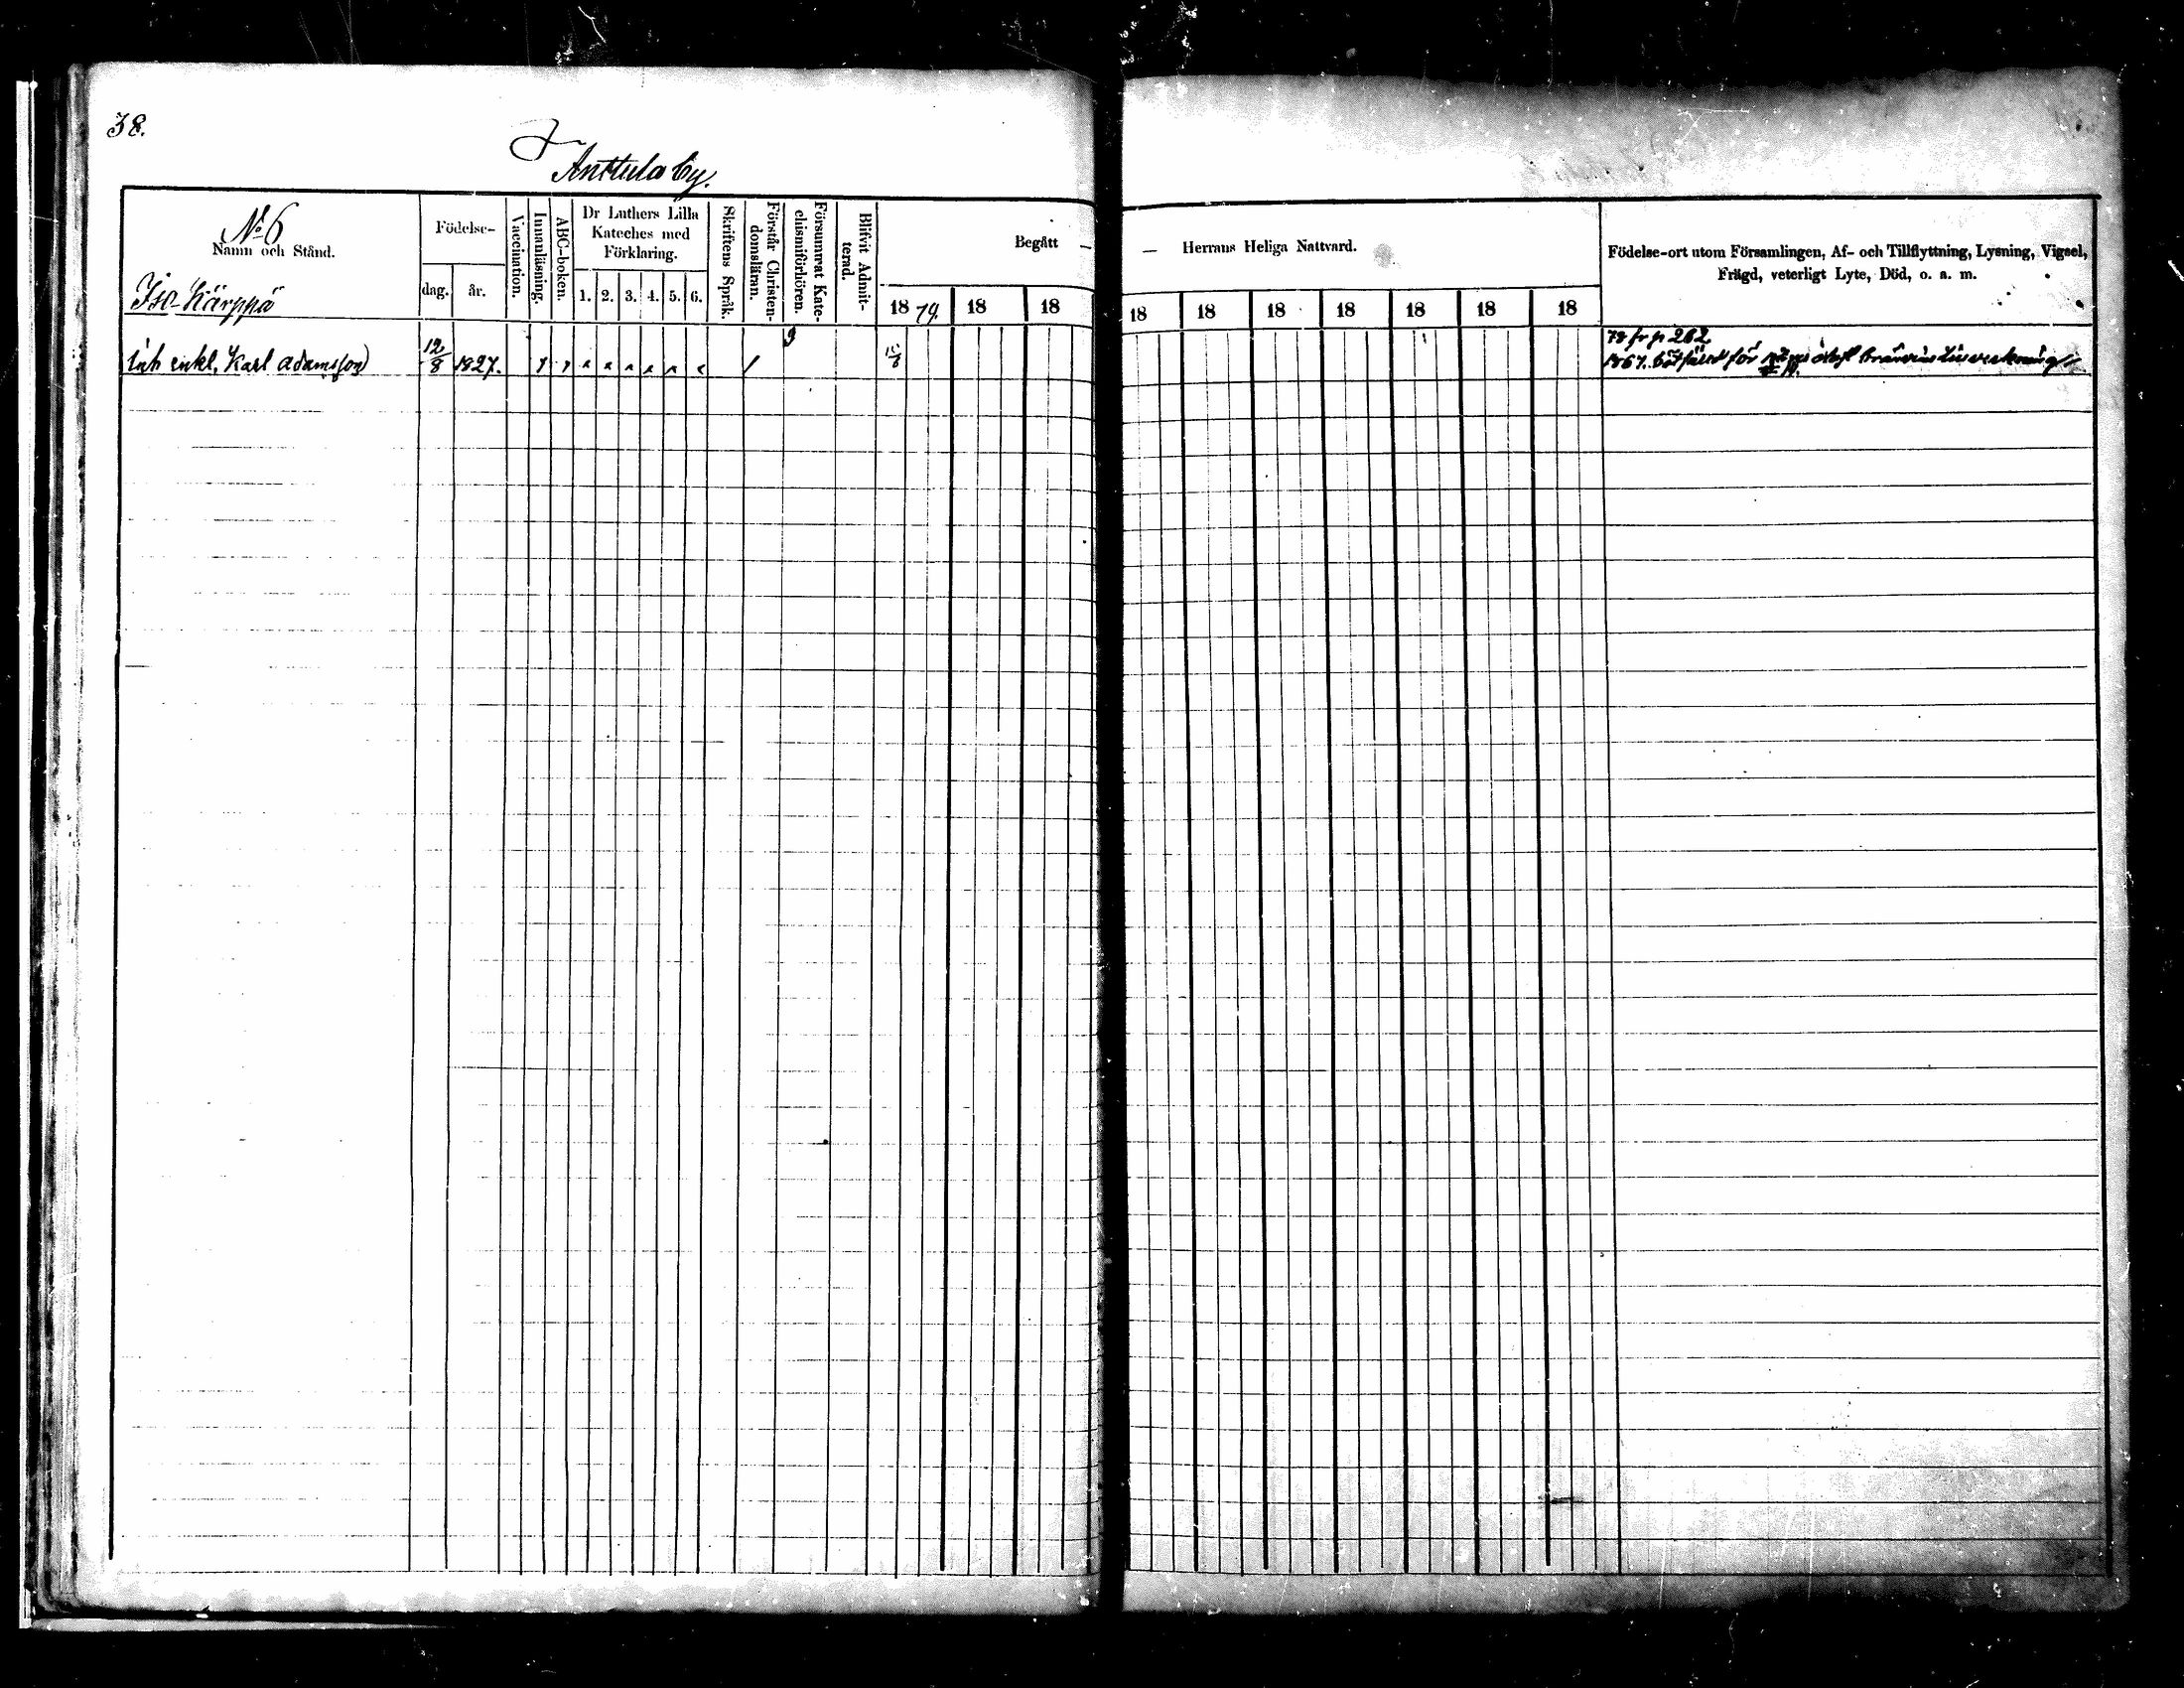 38.
Anttula by.
No 6
Namn och Stånd.
Iso-Kärppä
Födelse-
dag.
år.
Vaccination.
Innanläsning.
ABC-boken.
Dr Luthers Lilla
Kateches med
Förklaring.
1. 2. 3. 4. 5. 6.
Skriftens Språk.
Förstår Christen-
domsläran.
Försummat Kate-
chismiförhören.
Blifvit Admit-
terad.
Begått —
18 79. 18 18
— Herrans Heliga Nattvard.
18 18 18 18 18 18 18
Födelse-ort utom Församlingen, Af- och Tillflyttning, Lysning, Vigsel,
Frägd, veterligt Lyte, Död, o. a. m.
Inh enkl. Karl Adamsson 12/8 1827.
78 fr p 262
1867. bötfäld för olagl bränvins